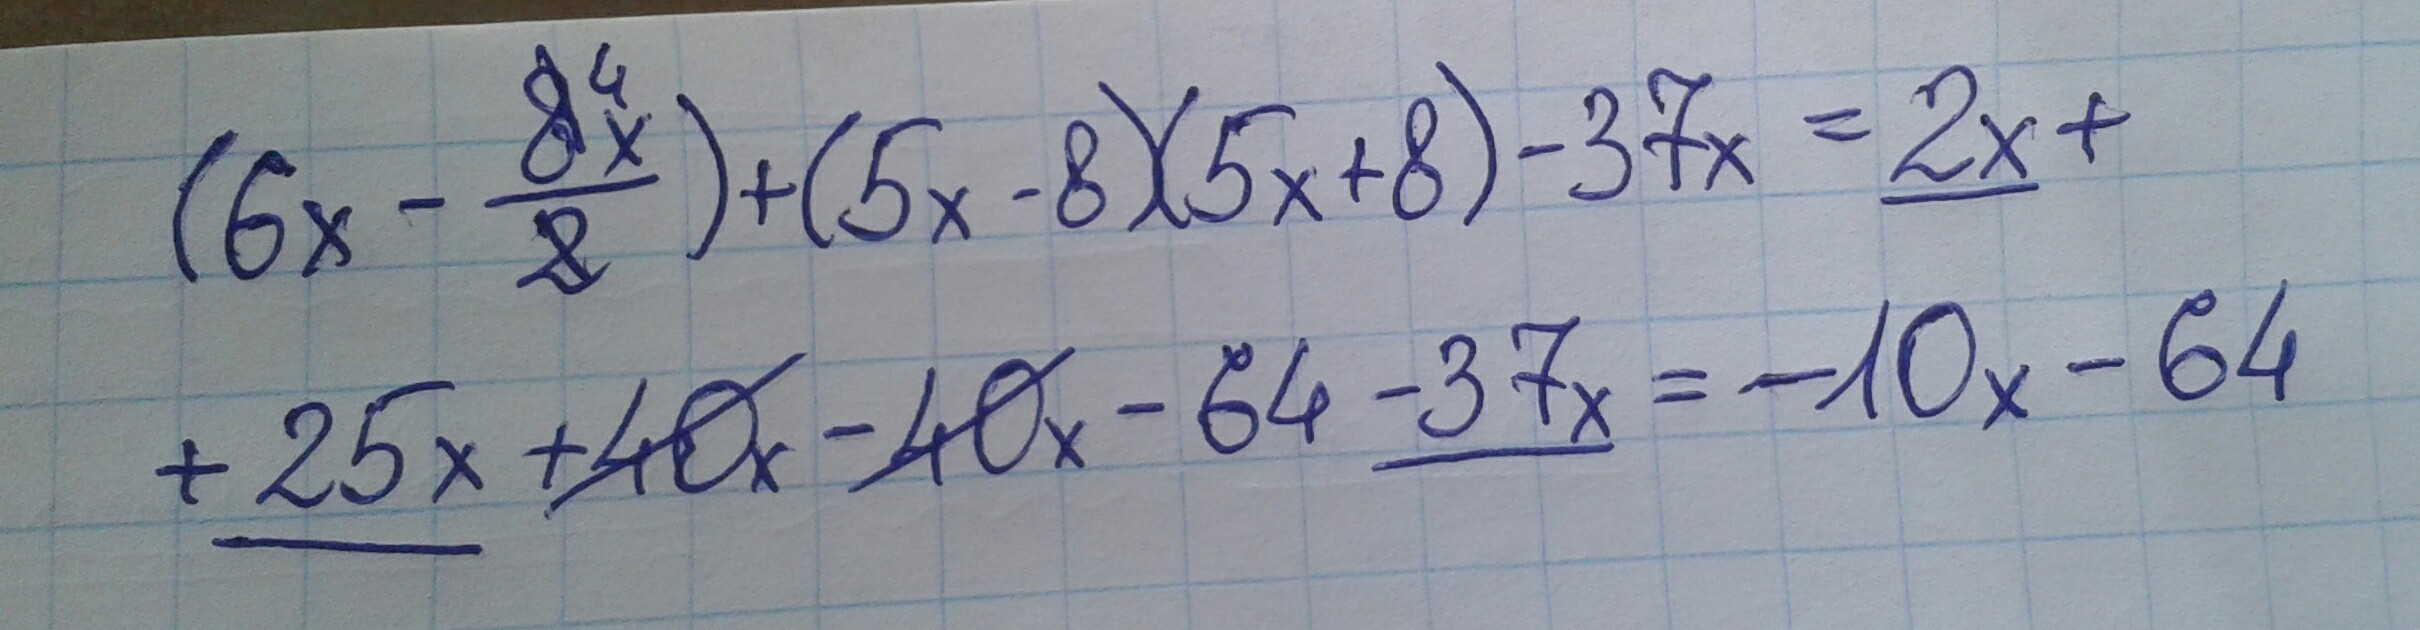 (6x - 8⁴x/2) + (5x - 8)(5x + 8) - 37x = 2x +
+ 25x + 40x - 40x - 64 - 37x = -10x - 64